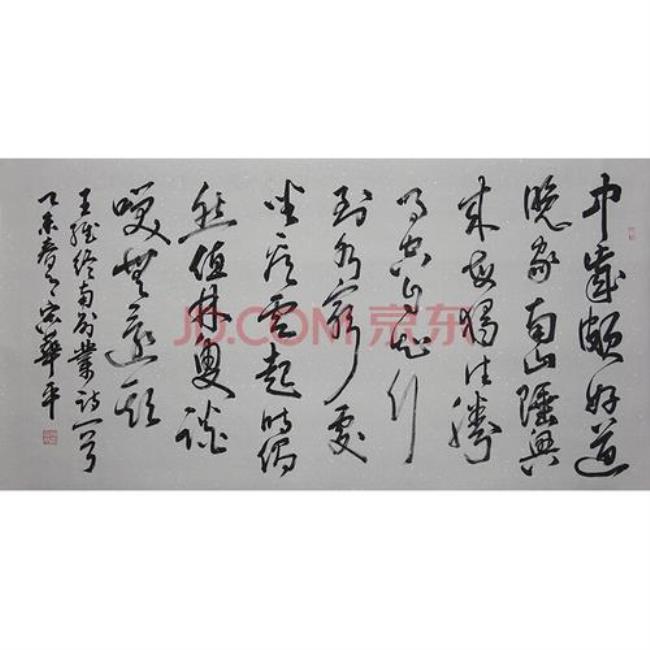 中歲頗好道
晚家南山陲興
來每獨往勝
事空自知行
到水窮處
坐看雲起時偶
然值林叟談
笑無還期
王維終南別業詩一首
乙未春月宋華平
JD.COM 京东